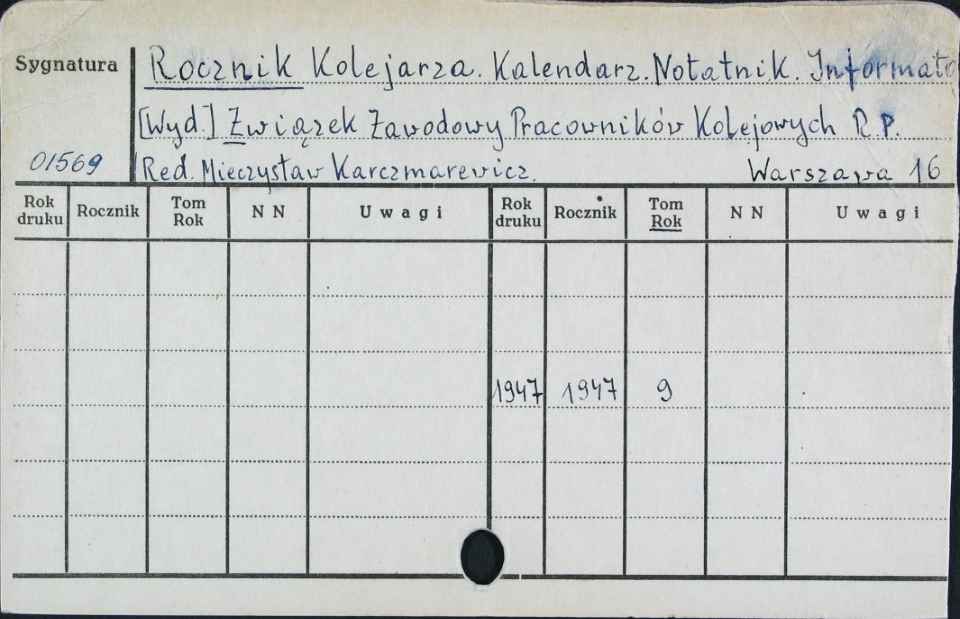 Sygnatura
Rocznik Kolejarza. Kalendarz. Notatnik. Informato
[Wyd.] Związek Zawodowy Pracowników Kolejowych R.P.
01569
Red. Mieczysław Karczmarewicz. Warszawa 16
Rok druku Rocznik Tom Rok N N Uwagi Rok druku Rocznik Tom Rok N N Uwagi
1947 1947 9